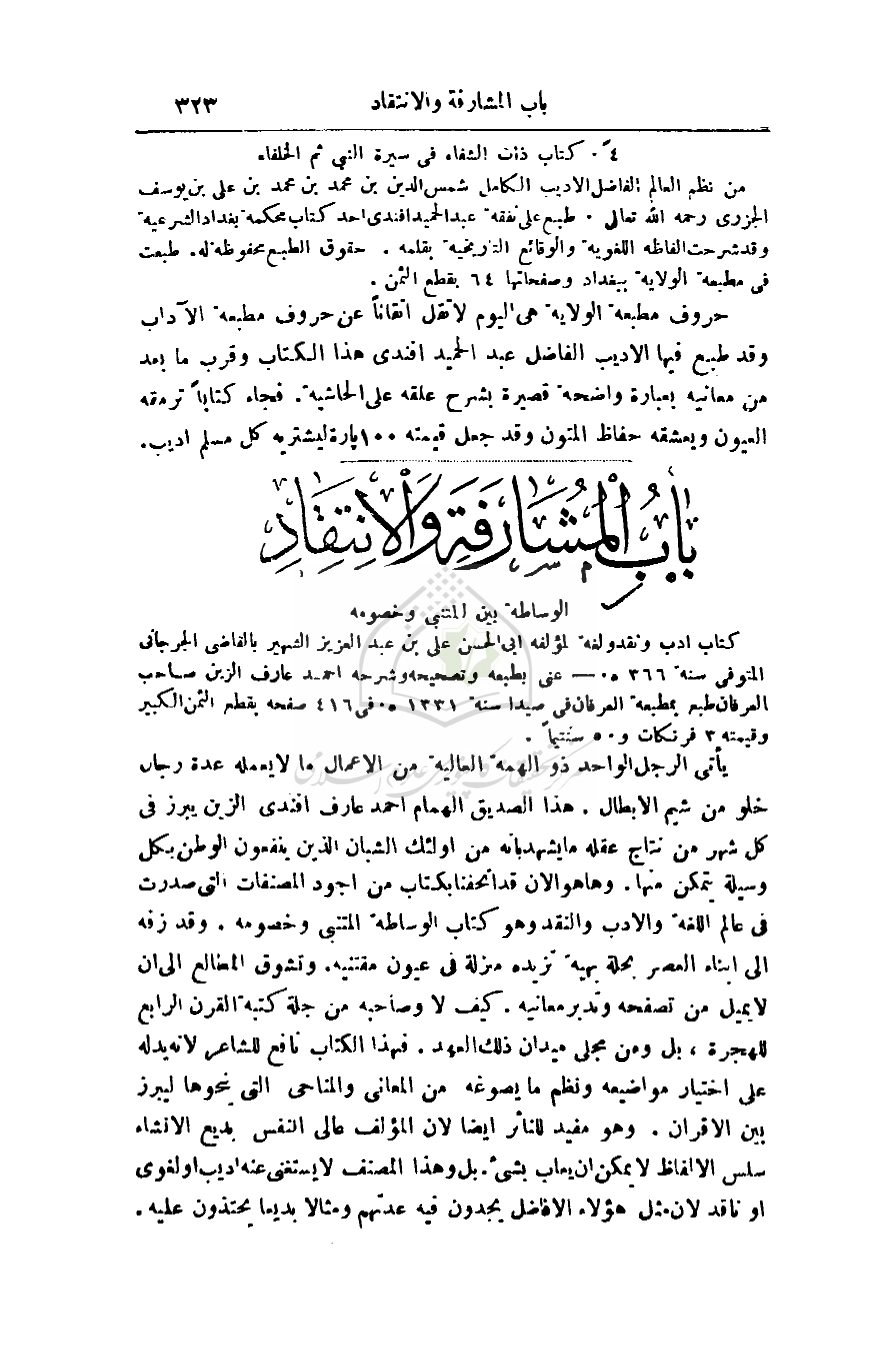 باب المشارفة والانتقاد ٣٢٣
٤ً . كتاب ذات الشفاء فى سيرة النبي ثم الخلفاء
من نظم العالم الفاضل الاديب الكامل شمس الدين بن محمد بن محمد بن على بن يوسف
الجزرى رحمه الله تعالى . طبع على نفقة عبد الحميد افندى احد كتاب محكمة بغداد الشرعية
وقد شرحت الفاظه اللغوية والوقائع التاريخية بقلمه . حقوق الطبع محفوظة له. طبعت
فى مطبعة الولاية ببغداد وصفحاتها ٦٤ بقطع الثمن .
حروف مطبعة الولاية هى اليوم لاتقل اتقاناً عن حروف مطبعة الآداب
وقد طبع فيها الاديب الفاضل عبد الحميد افندى هذا الكتاب وقرب ما بعد
من معانيه بعبارة واضحة قصيرة بشرح علقه على الحاشية. فجاء كتاباً ترمقه
العيون ويعشقه حفاظ المتون وقد جعل قيمته ١٠٠ پارة ليشتريه كل مسلم اديب.
بَابُ الْمُشَارَفَةِ وَالْاِنْتِقَادِ
الوساطة بين المتنبى وخصومه
كتاب ادب ونقد ولغة لمؤلفه ابى الحسن على بن عبد العزيز الشهير بالقاضى الجرجانى
المتوفى سنة ٣٦٦ ه. — عنى بطبعه وتصحيحه وشرحه احمد عارف الزين صاحب
العرفان طبع بمطبعة العرفان فى صيدا سنة ١٣٣١ ه. فى ٤١٦ صفحة بقطع الثمن الكبير
وقيمته ٣ فرنكات و ٥٠ سنتيماً .
يأتى الرجل الواحد ذو الهمة العالية من الاعمال ما لا يعمله عدة رجال
خلو من شيم الابطال . هذا الصديق الهمام احمد عارف افندى الزين يبرز فى
كل شهر من نتاج عقله ما يشهد بانه من اولئك الشبان الذين ينفعون الوطن بكل
وسيلة يتمكن منها. وها هو الان قد اتحفنا بكتاب من اجود المصنفات التى صدرت
فى عالم اللغة والادب والنقد وهو كتاب الوساطة المتنبى وخصومه . وقد زفه
الى ابناء العصر بحلة بهية تزيده منزلة فى عيون مقتنيه. وتشوق المطالع الى ان
لا يميل من تصفحه وتدبر معانيه . كيف لا وصاحبه من جلة كتبة القرن الرابع
للهجرة ، بل ومن مجلى ميدان ذلك العهد . فهذا الكتاب نافع للشاعر لانه يدله
على اختيار مواضيعه ونظم ما يصوغه من المعانى والمناحى التى نحوها ليبرز
بين الاقران . وهو مفيد للناثر ايضا لان المؤلف عالى النفس بديع الانشاء
سلس الالفاظ لا يمكن ان يعاب بشىء. بل وهذا المصنف لا يستغنى عنه اديب او لغوى
او ناقد لان مثل هؤلاء الافاضل يجدون فيه عدتهم ومثالا بديعا يحتذون عليه .